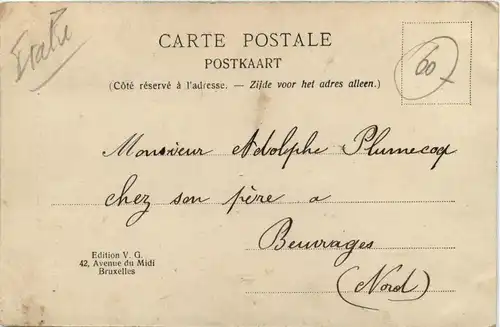 CARTE POSTALE
POSTKAART
(Côté réservé à l'adresse. — Zijde voor het adres alleen.)
60
Monsieur Adolphe Plumecoq
chez son père a
Beuvrages
(Nord)
Edition V. G.
42, Avenue du Midi
Bruxelles